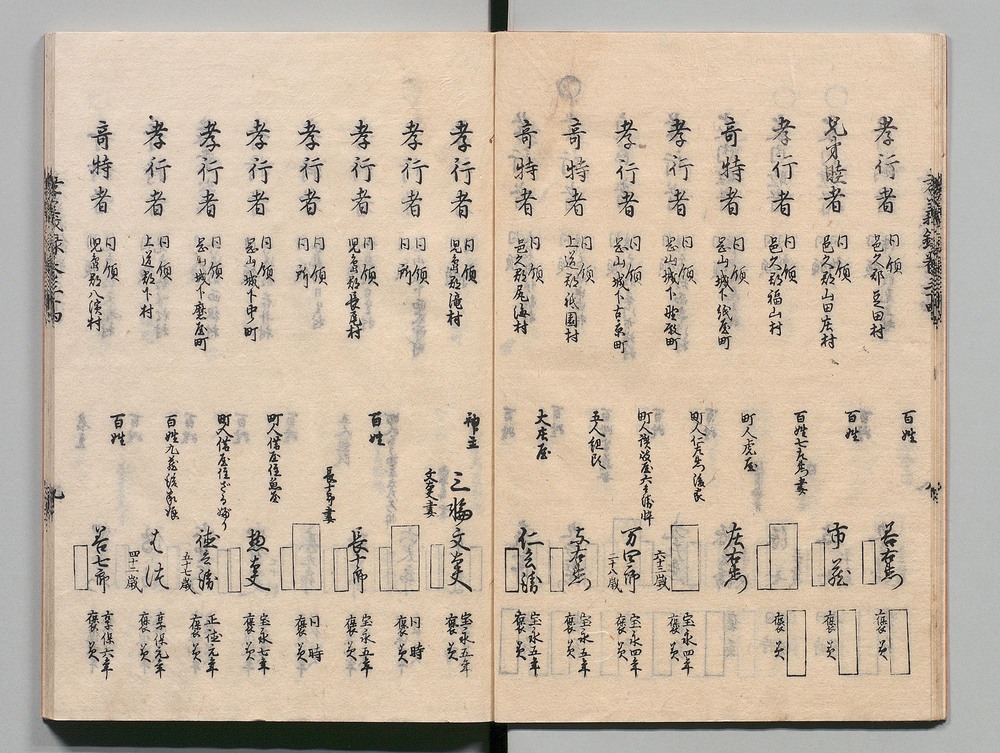 孝行者 同領 邑久郡豆田村 百姓 若右衛門 褒美
兄弟睦者 同領 邑久郡山田庄村 百姓 市蔵 褒美
孝行者 同領 邑久郡福山村 百姓七左衛門妻 褒美
奇特者 同領 岡山城下紙屋町 町人虎屋 庄右衛門
孝行者 同領 岡山城下野殿町 町人仁左衛門後家 六十三歳 宝永四年 褒美
孝行者 同領 岡山城下古京町 町人讃岐屋六左衛門倅 万四郎 二十八歳 宝永四年 褒美
奇特者 同領 上道郡祇園村 五人組頭 与右衛門 宝永五年 褒美
奇特者 同領 邑久郡尾張村 大庄屋 仁兵衛 宝永五年 褒美
孝行者 同領 児島郡滝村 神主 三輪文大夫 宝永五年 褒美
孝行者 同領 同所 文大夫妻 同時 褒美
孝行者 同領 児島郡長尾村 百姓 長十郎 宝永五年 褒美
孝行者 同領 同所 長十郎妻 同時 褒美
孝行者 同領 岡山城下中町 町人借屋住魚屋 惣大夫 宝永七年 褒美
孝行者 同領 岡山城下磨屋町 町人借屋住 徳兵衛 五十七歳 正徳元年 褒美
孝行者 同領 上道郡下村 百姓九蔵後家娘 はつ 四十二歳 享保元年 褒美
奇特者 同領 児島郡八浜村 百姓 若七郎 享保六年 褒美